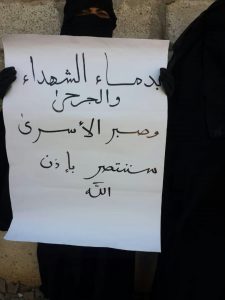 بدماء الشهداء
والجرحى
وصبر الأسرى
سننتصر بإذن
الله